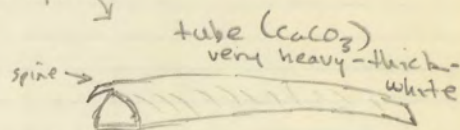 tube (CaCO3)
very heavy-thick-
white
spine